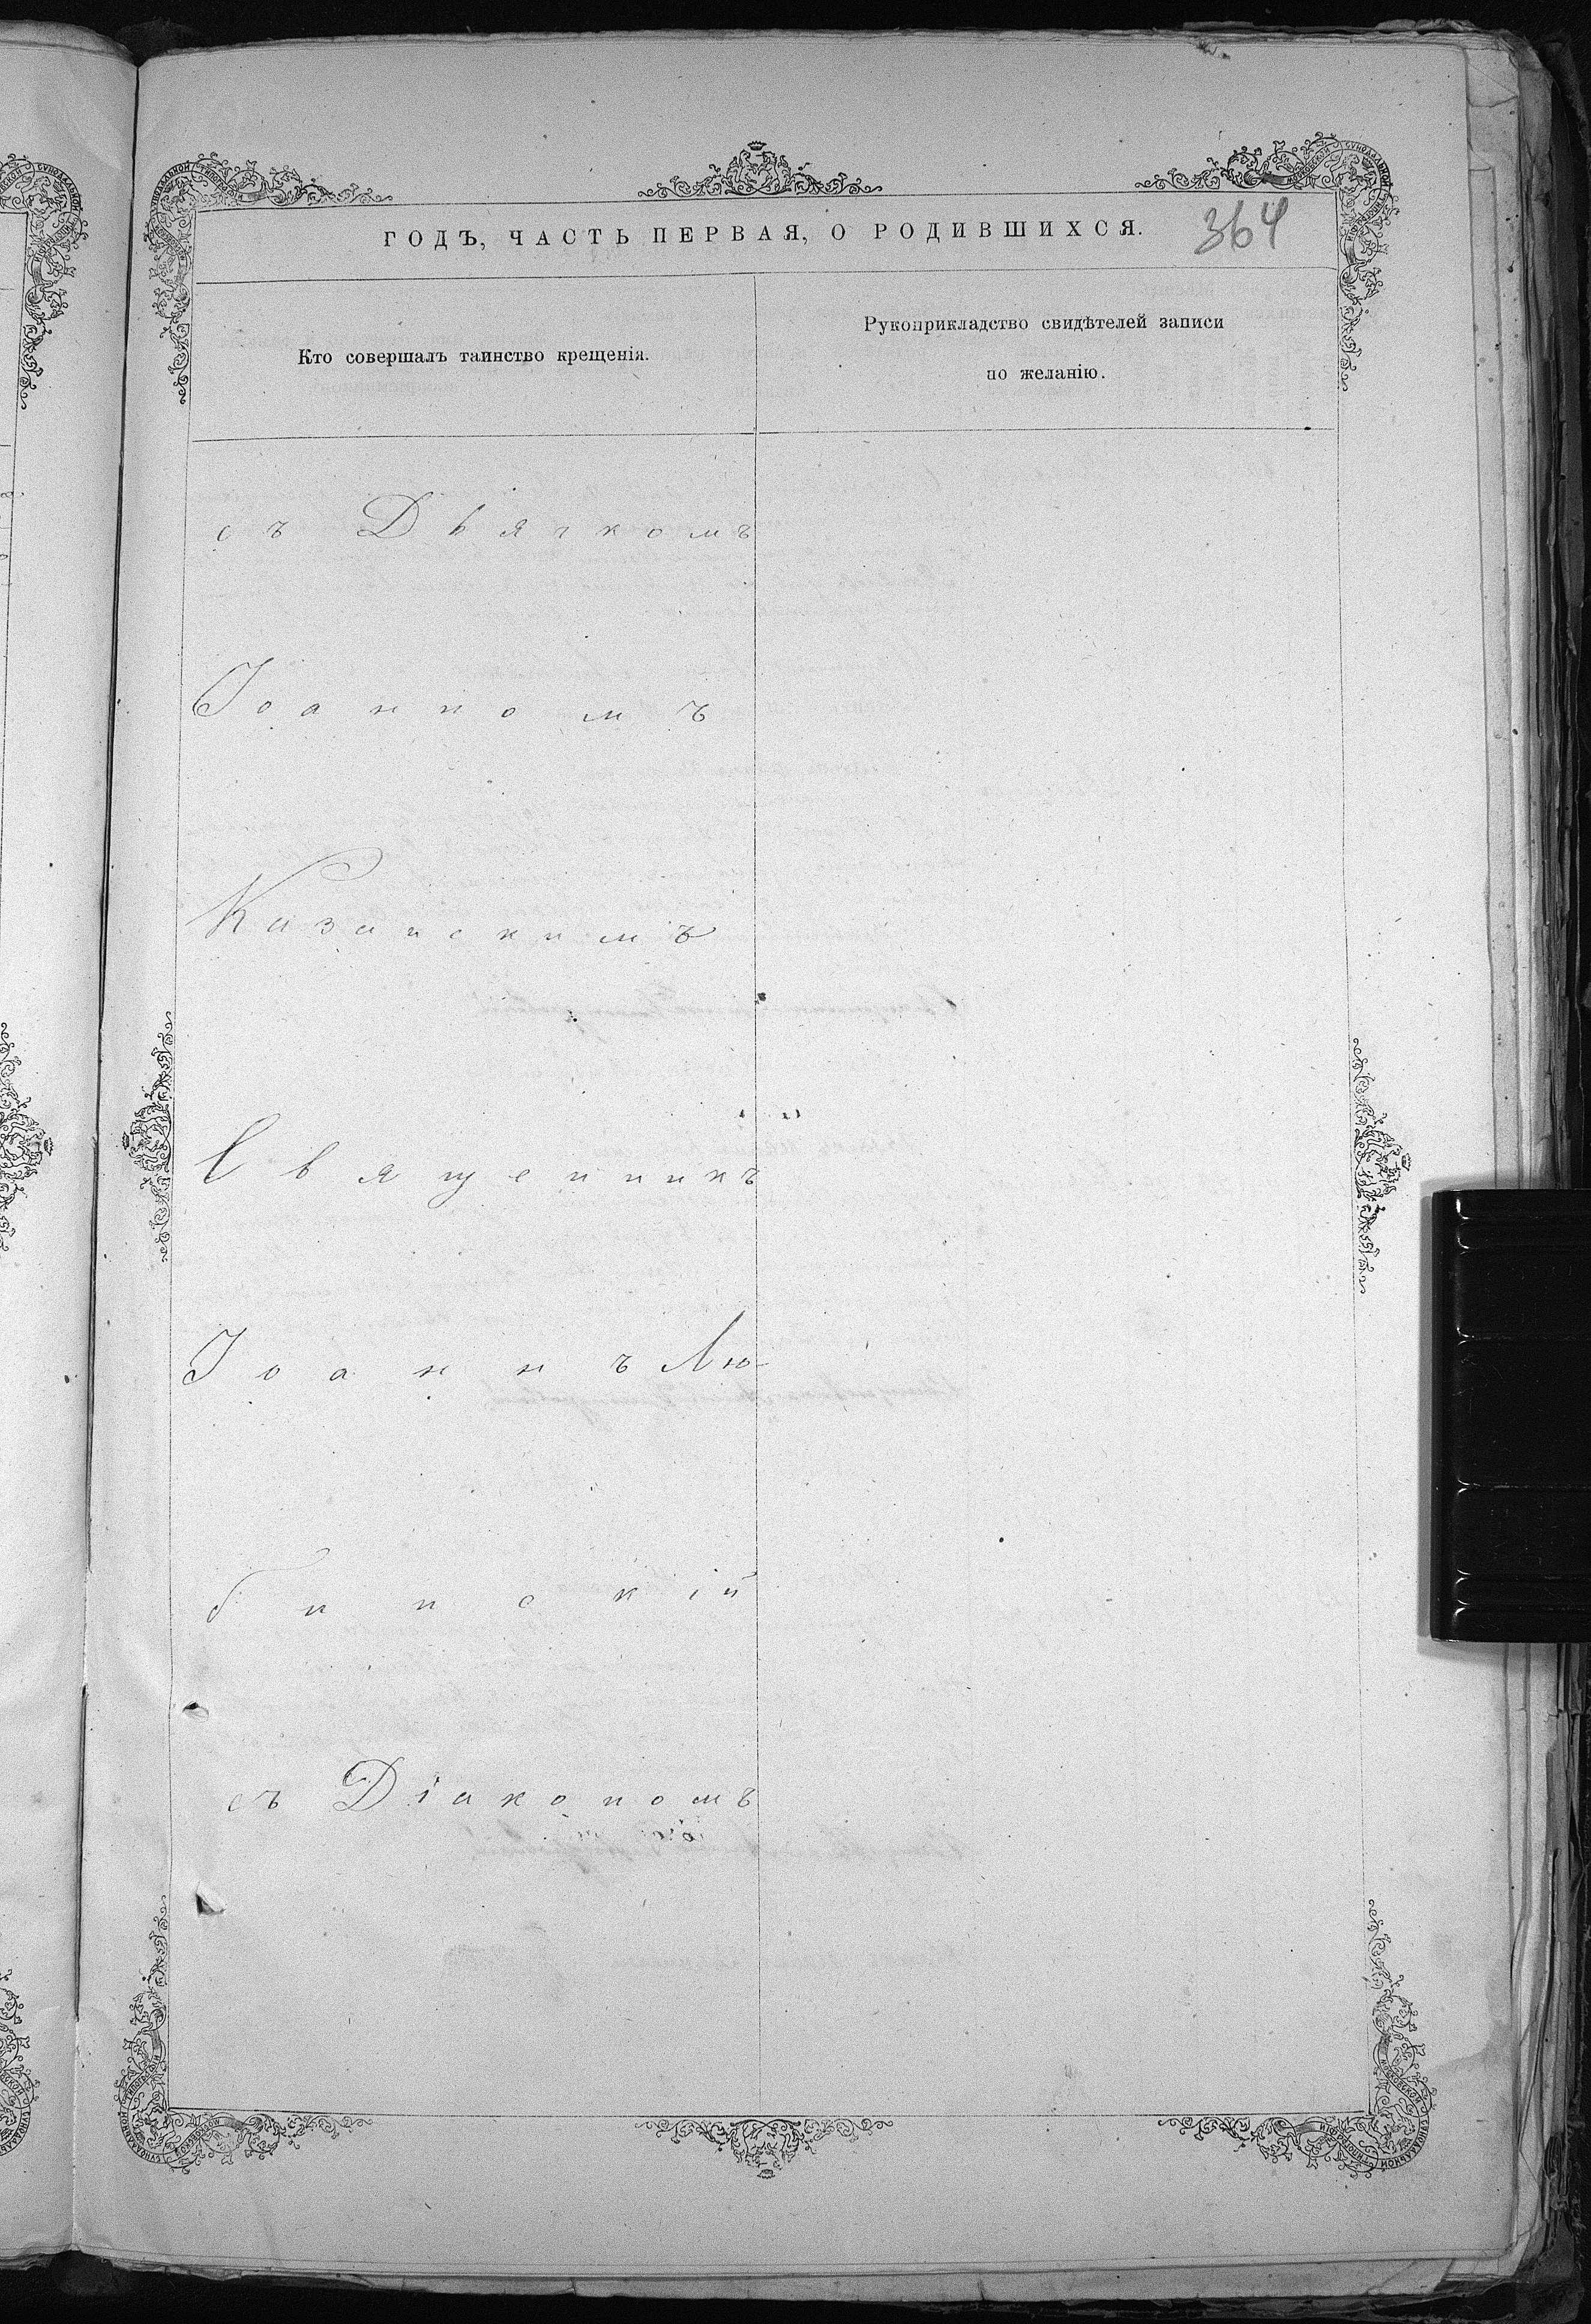 ГОДЪ, ЧАСТЬ ПЕРВАЯ, О РОДИВШИХСЯ. 364
Кто совершалъ таинство крещенія.
Рукоприкладство свидѣтелей записи
по желанію.
съ Дьячкомъ
Іоанномъ
Казанскимъ
Священникъ
Іоаннъ Лю-
бинскій
съ Діакономъ